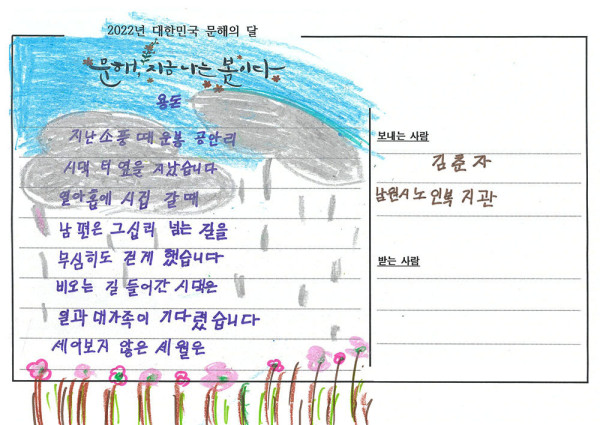 2022년 대한민국 문해의 달
문해, 지금 나는 봄이다
용돈
지난소풍 때 운봉 공안리
시댁 터 옆을 지났습니다
열아홉에 시집 갈 때
남편은 그십릭 넘는 길을
무심히도 걷게 했습니다
비오는 길 들어간 시댁은
일과 대가족이 기다렸습니다
세어보지 않은 세월은
보내는 사람
김준자
남원시노인복지관
받는 사람